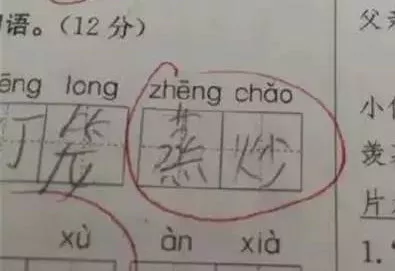 语。(12分) 父
ēng long zhēng chǎo
灯笼 蒸炒 小
羡
片
xù àn xià 1.